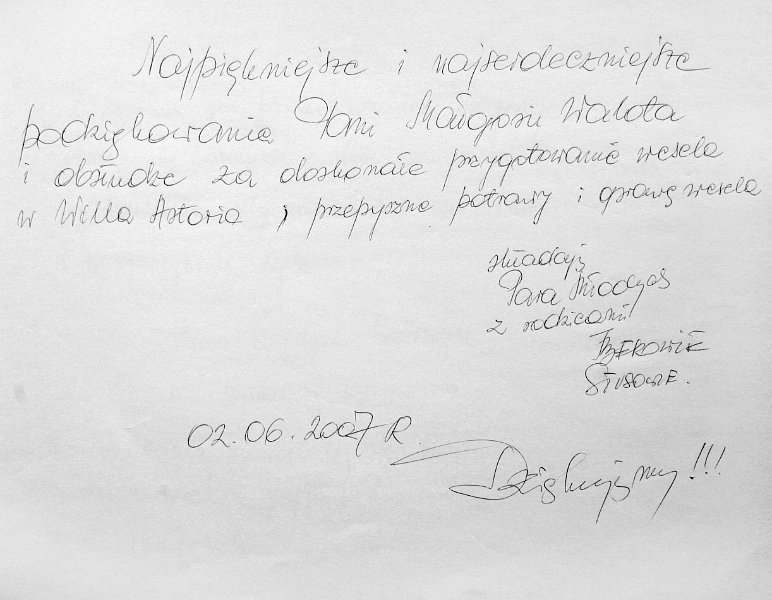 Najpiękniejsze i najserdeczniejsze
podziękowania Pani Małgosi Walota
i obsłudze za doskonałe przygotowanie wesela
w Willa Astoria, przepyszne potrawy i oprawę wesela
składają
Para Młodych
z rodzicami
02.06.2007 R.
Dziękujemy!!!